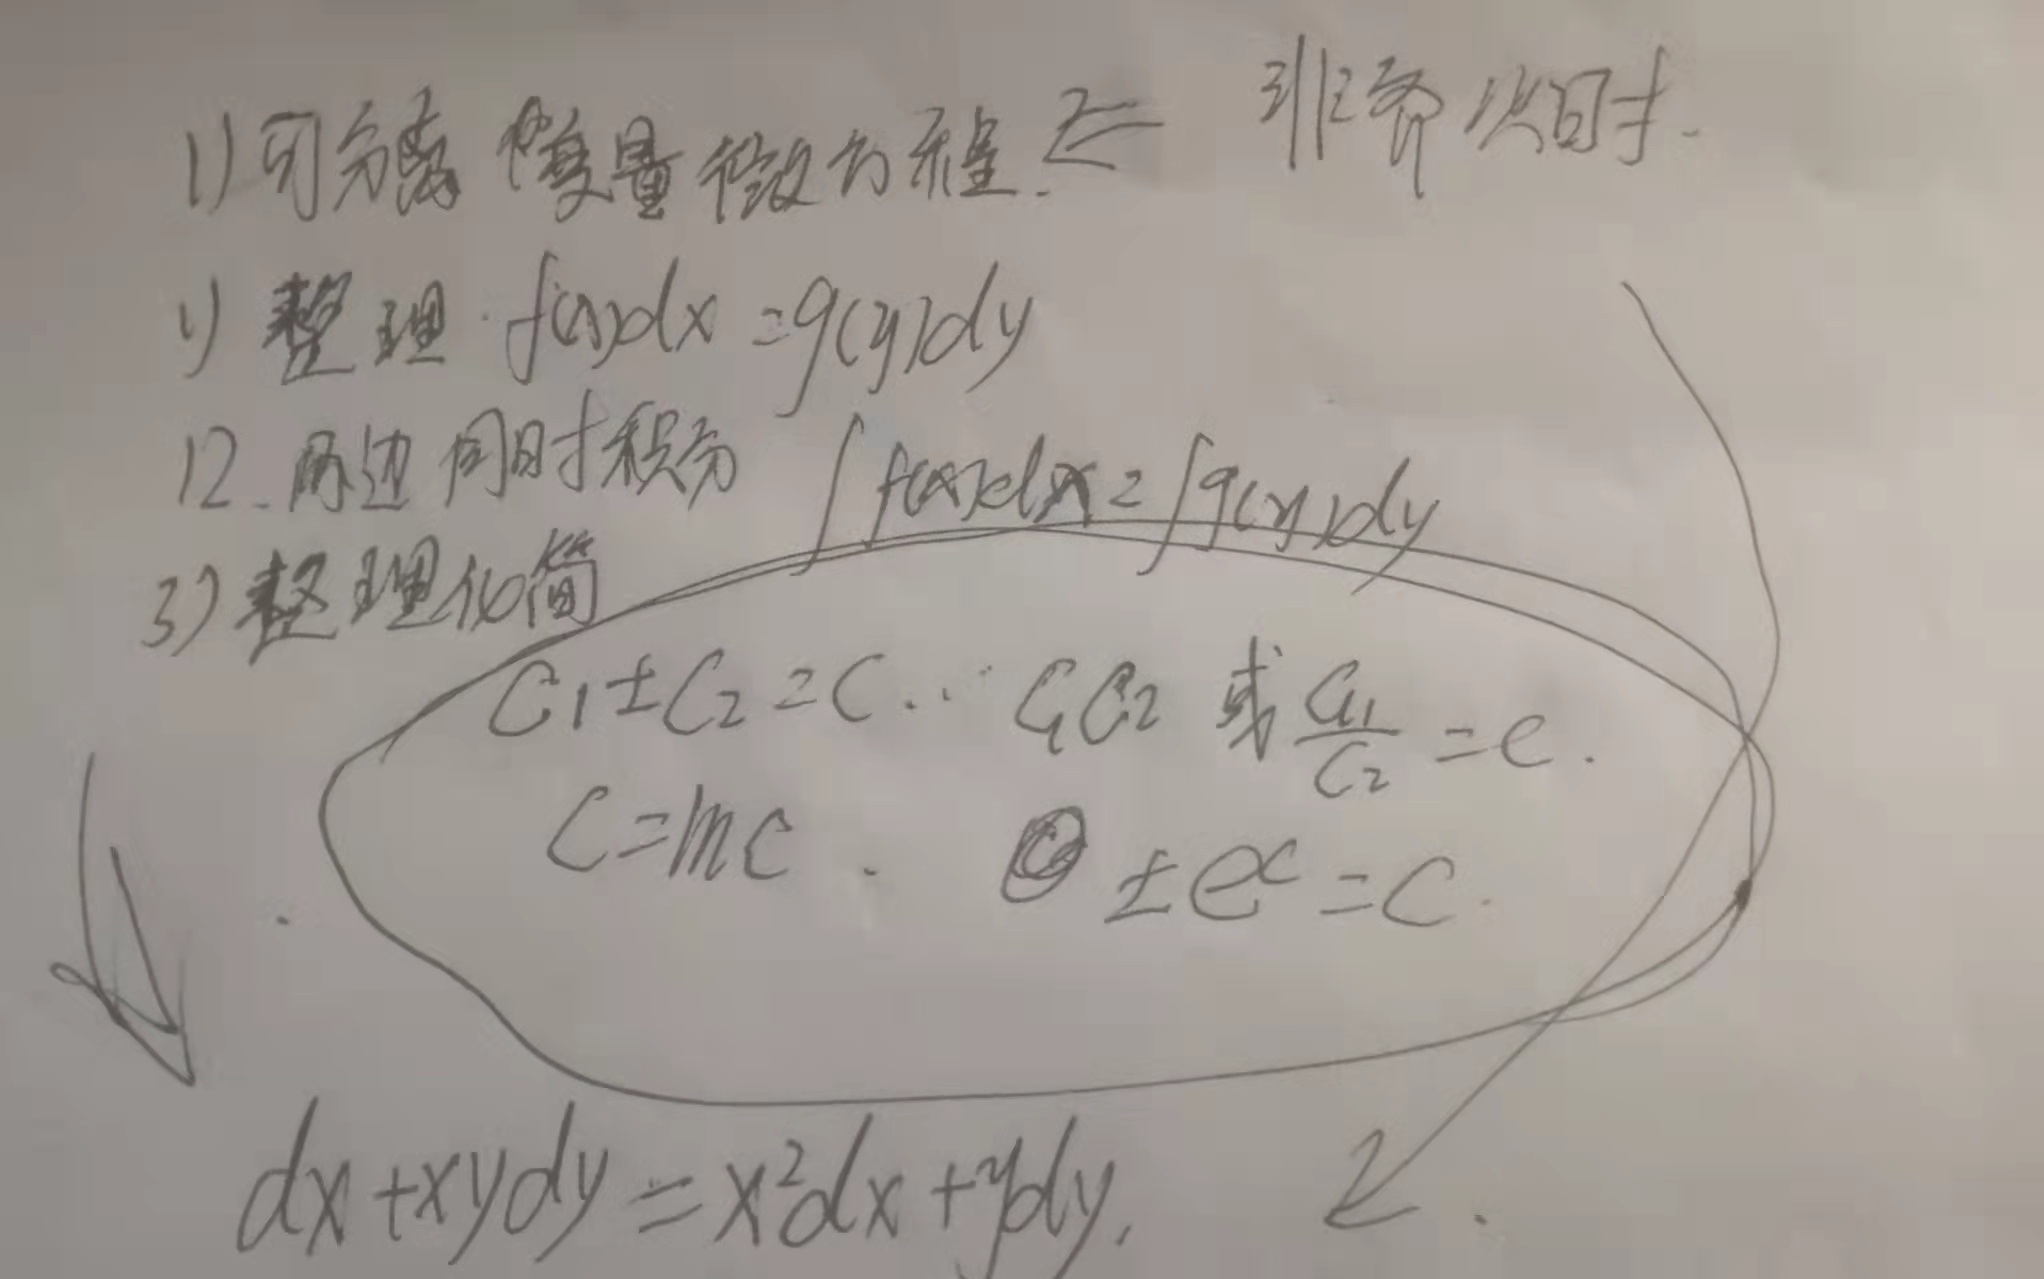 1) 可分离变量微分方程. ⇐ 非齐次时.
1) 整理. f(x)dx = g(y)dy
12. 两边同时积分 ∫f(x)dx = ∫g(y)dy
3) 整理化简
C₁ ± C₂ = C. ∵ C₁C₂ 或 C₁/C₂ = C.
C = lnC . ± e^C = C.
dx + xydy = x²dx + ydy.